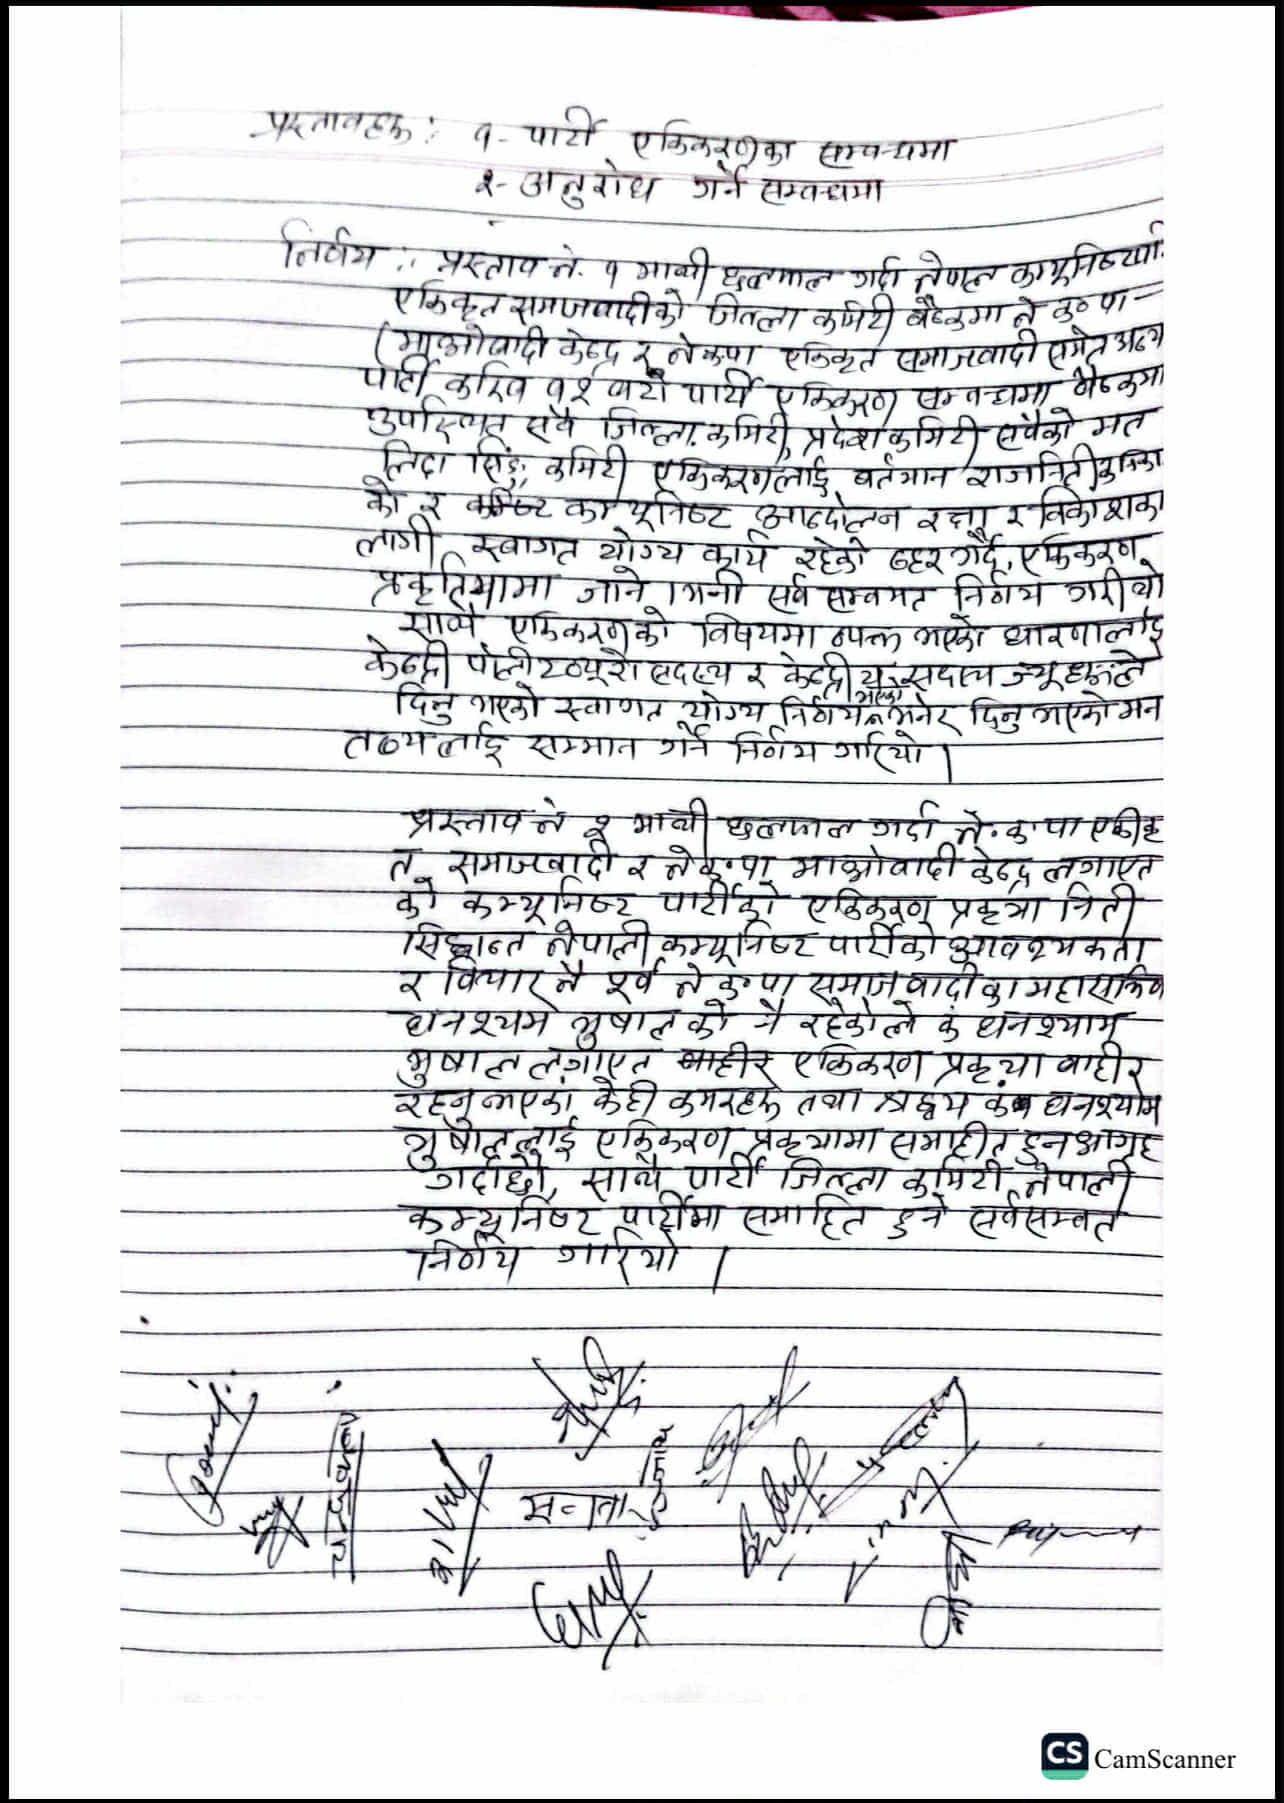 प्रस्तावहरु : १- पार्टी एकिकरणका सम्वन्धमा
२- अनुरोध गर्ने सम्वन्धमा
निर्णय : प्रस्ताव नं. १ माथी छलफल गर्दा नेपाल कम्यूनिष्टपार्टी
एकिकृत समाजवादीको जिल्ला कमिटी बैठकमा ने क पा
(माओवादी केन्द्र र नेकपा एकिकृत समाजवादी समेत अन्य
पार्टी करिव १२ वटा पार्टी एकिकरण सम्वन्धमा बैठकमा
उपस्थित सवै जिल्ला कमिटी, प्रदेश कमिटी सवैको मत
लिदा कमिटी एकिकरणलाई वर्तमान राजनिती
को र कम्यूनिष्ट आन्दोलन रक्षा र विकाशका
लागी स्वागत योग्य कार्य रहेको ठहर गर्दै, एकिकरण
प्रकृतियामा जाने भनी सर्व सम्वमत निर्णय गरीयो
साथै एकिकरणको विषयमा व्यक्त भएको धारणालाई
केन्द्री पोलीटव्यूरो सदस्य र केन्द्रीय सदस्य ज्यूहरुले
दिनु भएको स्वागत योग्य निर्णय भएको भनेर दिनु भएको मन
तव्यलाई सम्मान गर्ने निर्णय गरियो ।
प्रस्ताव नं २ माथी छलफल गर्दा ने.क.पा एकीकृ
त समाजवादी र ने क.पा माओवादी केन्द्र लगाएत
को कम्यूनिष्ट पार्टीको एकिकरण प्रकृया निती
सिद्धान्त नेपाली कम्यूनिष्ट पार्टीको आवश्यकता
र विचार नै पूर्व ने क पा समाजवादीका महासचिव
घनश्याम भुषालको नै रहेकोले कं घनश्याम
भुषाल लगाएत बाहीर एकिकरण प्रकृया वाहीर
रहनुभएका केही कमरहरु तथा श्रद्धेय कं घनश्याम
भुषाललाई एकिकरण प्रकृयामा समाहीत हुन आग्रह
गर्दाछौ, साथै पार्टी जिल्ला कमिटी नेपाली
कम्यूनिष्ट पार्टीमा समाहित हुने सर्वसम्वत
निर्णय गरियो ।
CS CamScanner